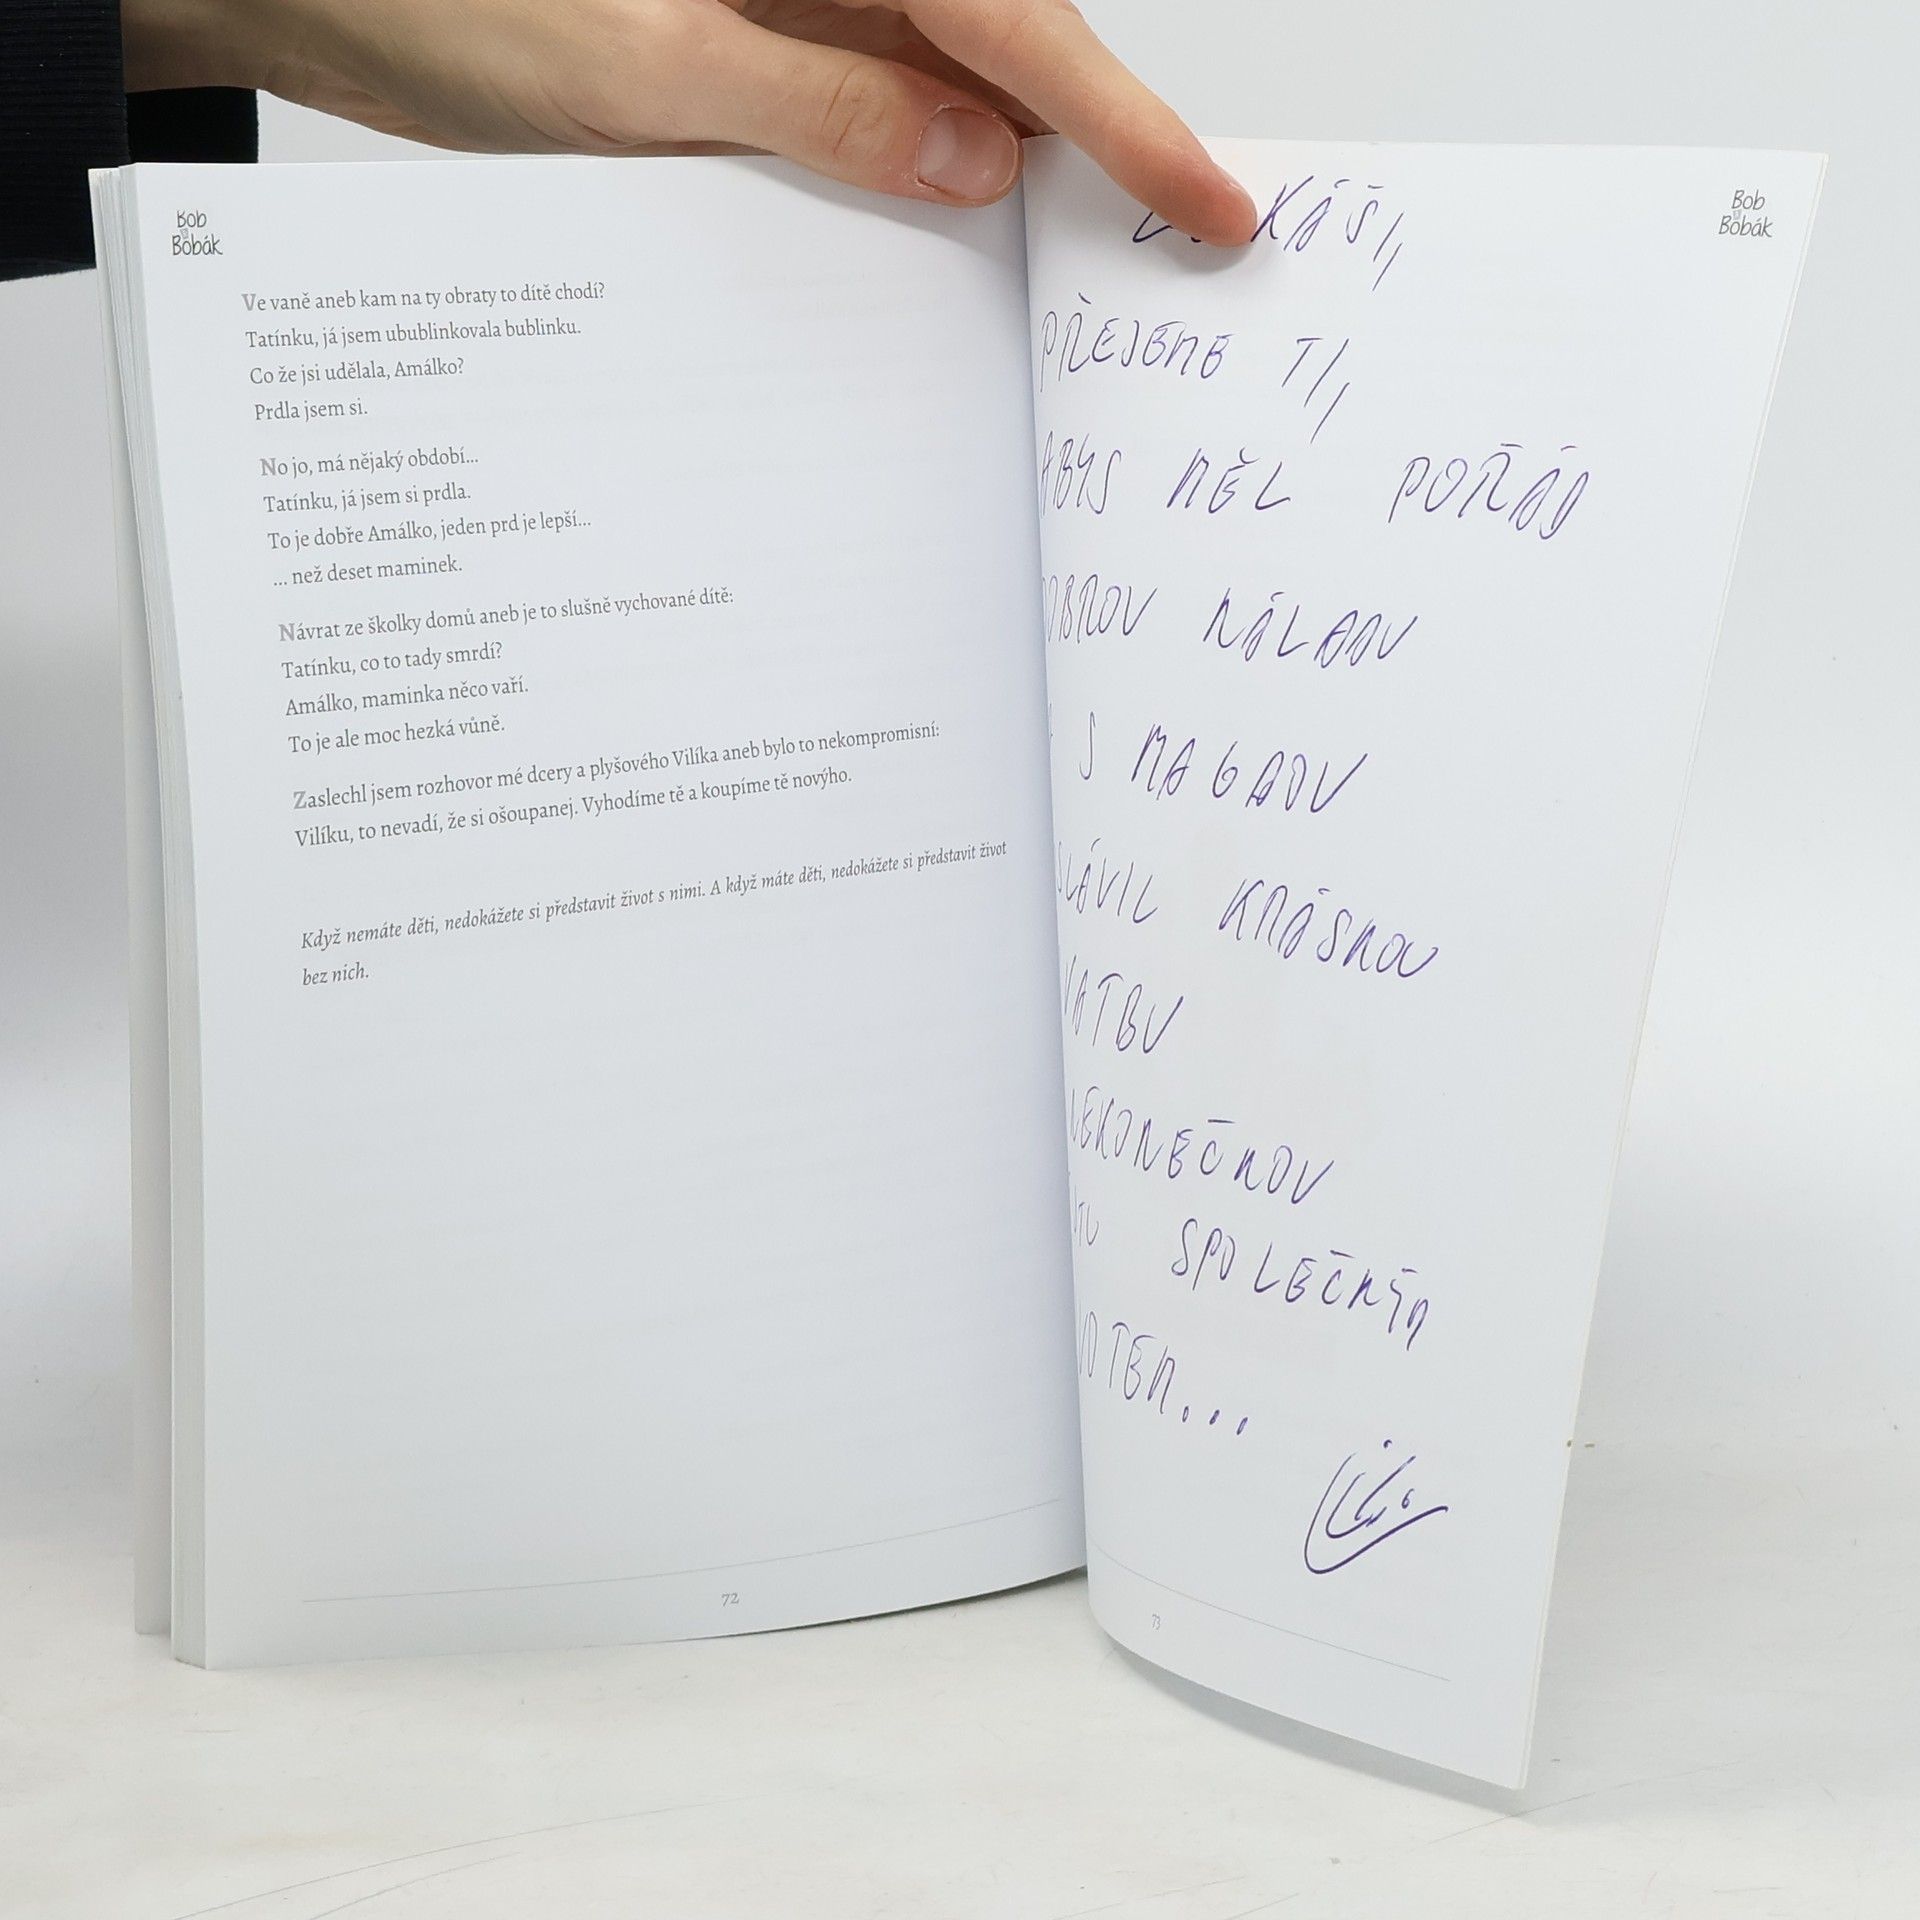 Bob
Bobák
Ve vaně aneb kam na ty obraty to dítě chodí?
Tatínku, já jsem ubublinkovala bublinku.
Co že jsi udělala, Amálko?
Prdla jsem si.
No jo, má nějaký období...
Tatínku, já jsem si prdla.
To je dobře Amálko, jeden prd je lepší...
... než deset maminek.
Návrat ze školky domů aneb je to slušně vychované dítě:
Tatínku, co to tady smrdí?
Amálko, maminka něco vaří.
To je ale moc hezká vůně.
Zaslechl jsem rozhovor mé dcery a plyšového Vilíka aneb bylo to nekompromisní:
Vilíku, to nevadí, že si ošoupanej. Vyhodíme tě a koupíme tě novýho.
Když nemáte děti, nedokážete si představit život s nimi. A když máte děti, nedokážete si představit život
bez nich.
72
Bob
Bobák
KÁŠI,
PŘEJEME TI,
ABYS MĚL POŘÁD
DOBROU NÁLADU
S MAGDOU
SLÁVIL KRÁSNOU
VATBU
NEKONEČNOU
SPOLEČNÝM
OTEM...
73